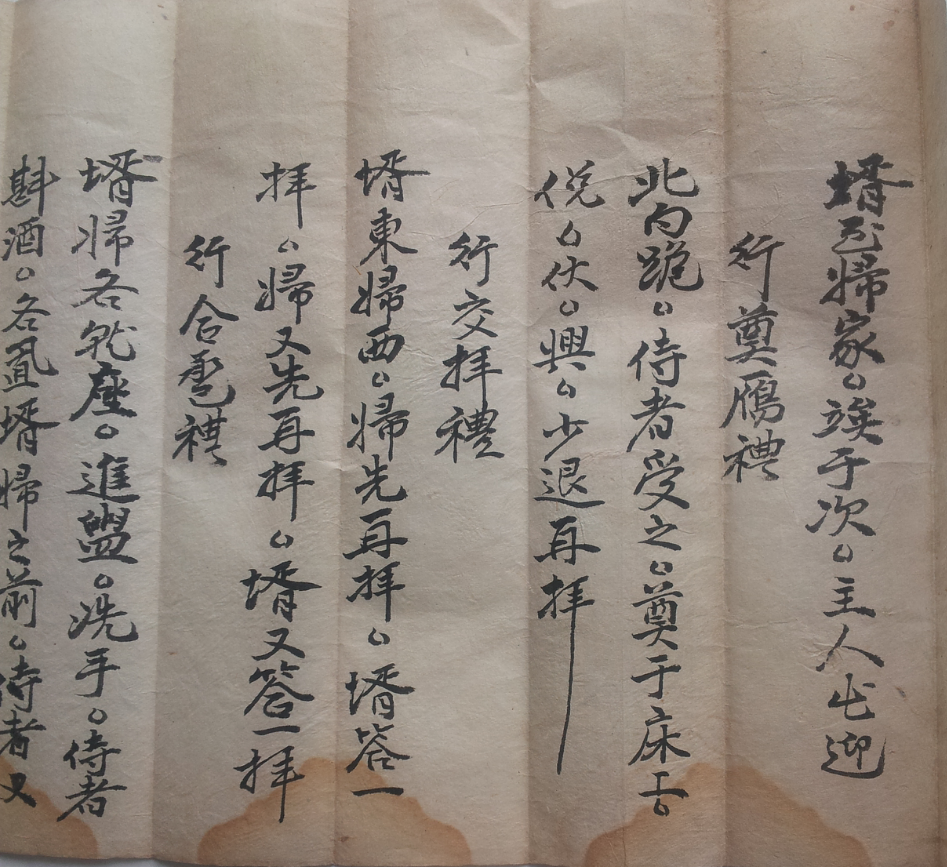 壻至婦家。竢于次。主人出迎
行奠鴈禮
北向跪。侍者受之。奠于床上。
俛。伏。興。少退再拜
行交拜禮
壻東婦西。婦先再拜。壻答一
拜。婦又先再拜。壻又答一拜
行合巹禮
壻婦各就座。進盥。洗手。侍者
斟酒。各置壻婦之前。侍者又